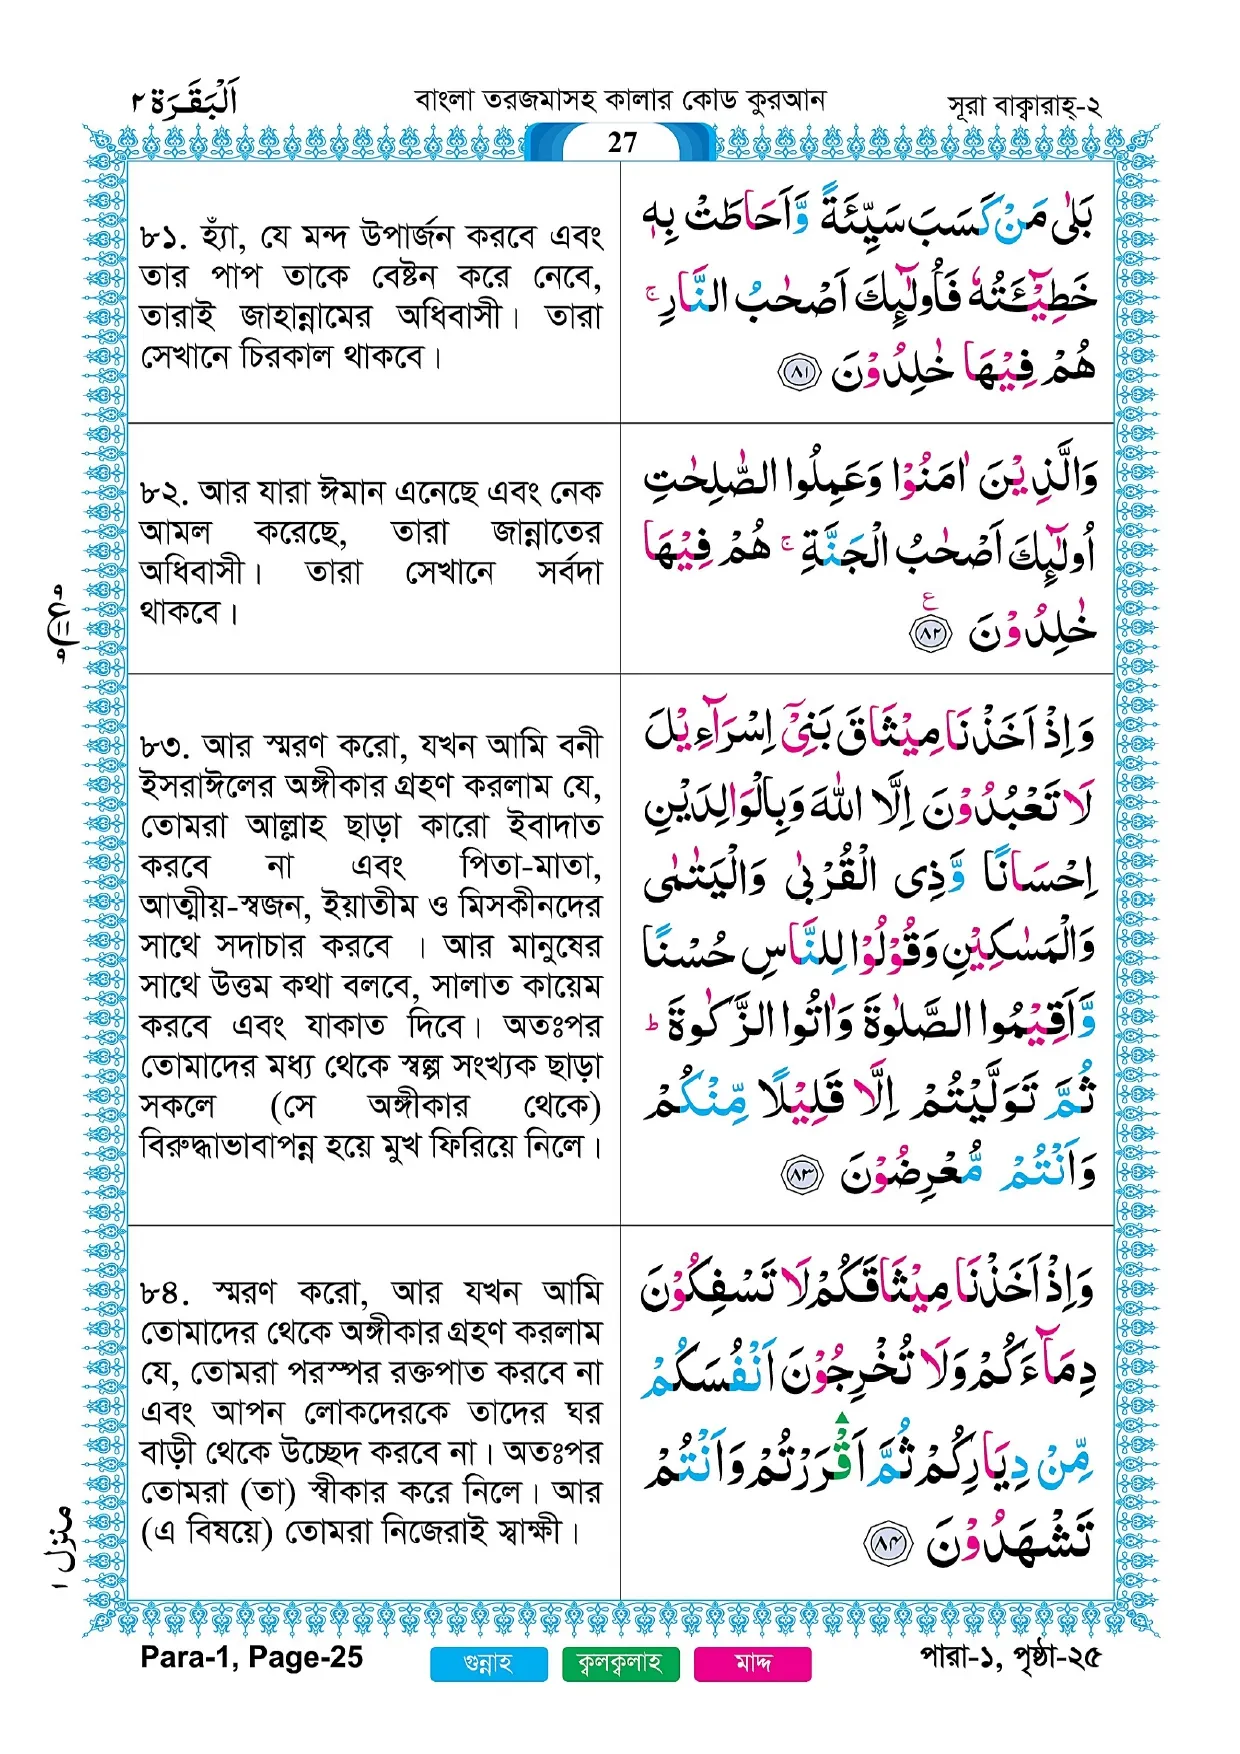 اَلْبَقَرَة ٢
বাংলা তরজমাসহ কালার কোড কুরআন
সূরা বাক্বারাহ্-২
27
৮১. হ্যাঁ, যে মন্দ উপার্জন করবে এবং
তার পাপ তাকে বেষ্টন করে নেবে,
তারাই জাহান্নামের অধিবাসী। তারা
সেখানে চিরকাল থাকবে।
بَلٰى مَنْ كَسَبَ سَيِّئَةً وَّاَحَاطَتْ بِهٖ
خَطِيْٓـَٔتُهٗ فَاُولٰٓئِكَ اَصْحٰبُ النَّارِ ۚ
هُمْ فِيْهَا خٰلِدُوْنَ ٨١
৮২. আর যারা ঈমান এনেছে এবং নেক
আমল করেছে, তারা জান্নাতের
অধিবাসী। তারা সেখানে সর্বদা
থাকবে।
وَالَّذِيْنَ اٰمَنُوْا وَعَمِلُوا الصّٰلِحٰتِ
اُولٰٓئِكَ اَصْحٰبُ الْجَنَّةِ ۚ هُمْ فِيْهَا
خٰلِدُوْنَ ٨٢ ع
৮৩. আর স্মরণ করো, যখন আমি বনী
ইসরাঈলের অঙ্গীকার গ্রহণ করলাম যে,
তোমরা আল্লাহ ছাড়া কারো ইবাদাত
করবে না এবং পিতা-মাতা,
আত্মীয়-স্বজন, ইয়াতীম ও মিসকীনদের
সাথে সদাচার করবে । আর মানুষের
সাথে উত্তম কথা বলবে, সালাত কায়েম
করবে এবং যাকাত দিবে। অতঃপর
তোমাদের মধ্য থেকে স্বল্প সংখ্যক ছাড়া
সকলে (সে অঙ্গীকার থেকে)
বিরুদ্ধাভাবাপন্ন হয়ে মুখ ফিরিয়ে নিলে।
وَاِذْ اَخَذْنَا مِيْثَاقَ بَنِيْٓ اِسْرَآءِيْلَ
لَا تَعْبُدُوْنَ اِلَّا اللّٰهَ وَبِالْوَالِدَيْنِ
اِحْسَانًا وَّذِى الْقُرْبٰى وَالْيَتٰمٰى
وَالْمَسٰكِيْنِ وَقُوْلُوْا لِلنَّاسِ حُسْنًا
وَّاَقِيْمُوا الصَّلٰوةَ وَاٰتُوا الزَّكٰوةَ ؕ
ثُمَّ تَوَلَّيْتُمْ اِلَّا قَلِيْلًا مِّنْكُمْ
وَاَنْتُمْ مُّعْرِضُوْنَ ٨٣
৮৪. স্মরণ করো, আর যখন আমি
তোমাদের থেকে অঙ্গীকার গ্রহণ করলাম
যে, তোমরা পরস্পর রক্তপাত করবে না
এবং আপন লোকদেরকে তাদের ঘর
বাড়ী থেকে উচ্ছেদ করবে না। অতঃপর
তোমরা (তা) স্বীকার করে নিলে। আর
(এ বিষয়ে) তোমরা নিজেরাই স্বাক্ষী।
وَاِذْ اَخَذْنَا مِيْثَاقَكُمْ لَا تَسْفِكُوْنَ
دِمَآءَكُمْ وَلَا تُخْرِجُوْنَ اَنْفُسَكُمْ
مِّنْ دِيَارِكُمْ ثُمَّ اَقْرَرْتُمْ وَاَنْتُمْ
تَشْهَدُوْنَ ٨٤
منزل ١
Para-1, Page-25
গুন্নাহ
ক্বলক্বলাহ
মাদ্দ
পারা-১, পৃষ্ঠা-২৫